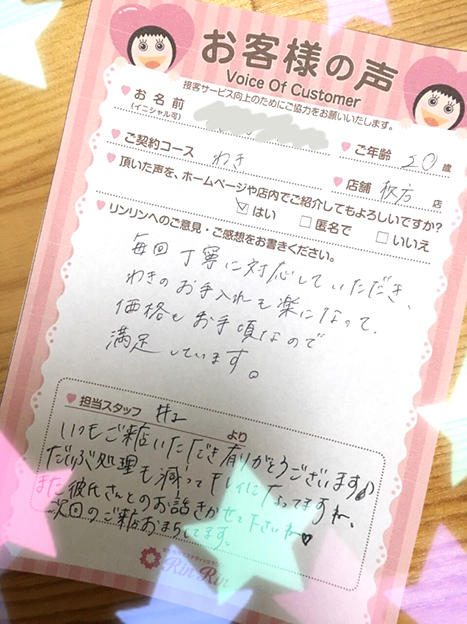 お客様の声
Voice Of Customer
接客サービス向上のためにご協力をお願いいたします。
お名前
(イニシャル可)
ご年齢 20 歳
ご契約コース わき
店舗 枚方 店
頂いた声を、ホームページや店内でご紹介してもよろしいですか?
はい 匿名で いいえ
リンリンへのご意見・ご感想をお書きください。
毎回丁寧に対応していただき、
わきのお手入れも楽になって、
価格もお手頃なので
満足しています。
担当スタッフ 井上 より
いつもご来店いただき有りがとうございます♪
だいぶ処理も減ってキレイになってますね。
また彼氏さんとのお話きかせて下さいね♥
次回のご来店おまちしてます。
RinRin